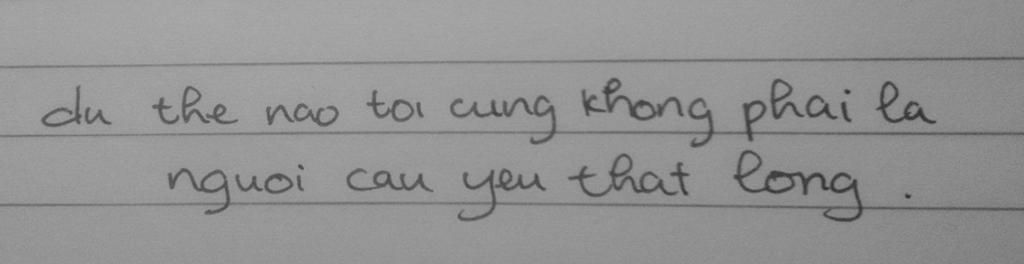 du the nao toi cung khong phai la
nguoi cau yeu that long .